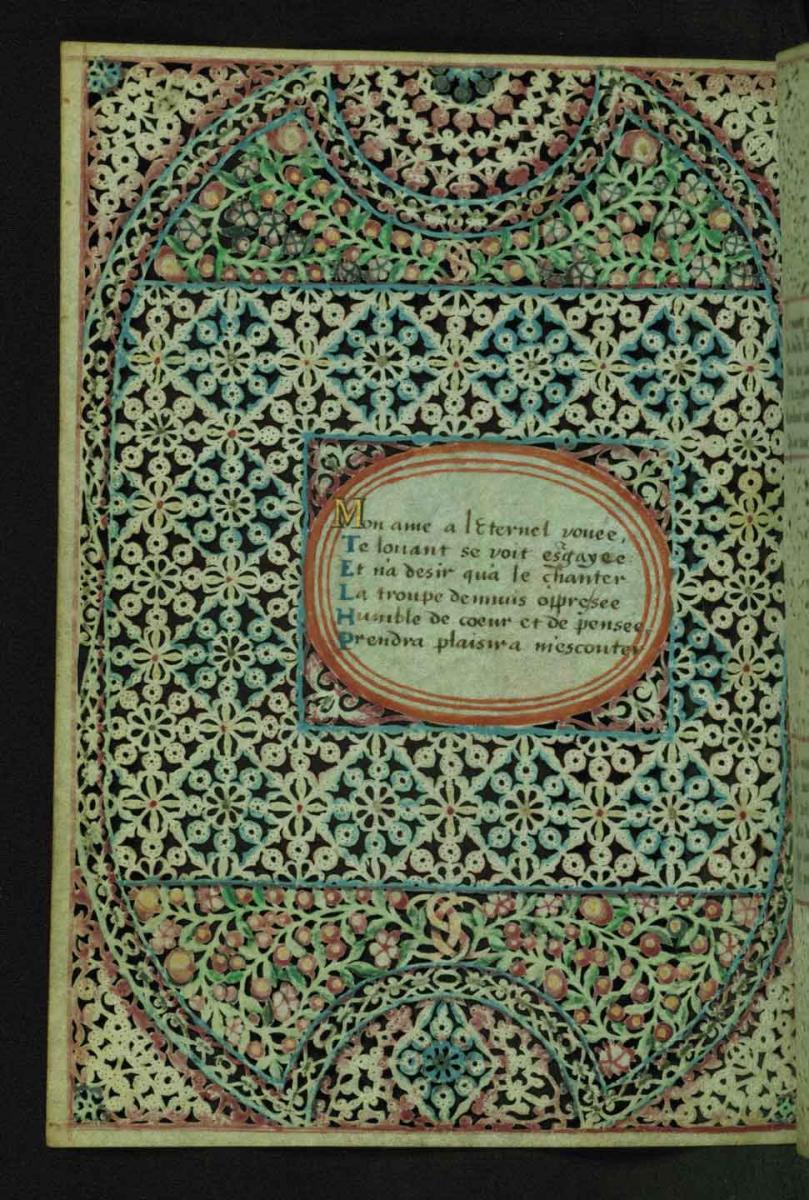 Mon ame a lEternel vouée,
Te louant se voit esgayee
Et n'a desir qu'a le chanter
La troupe dennuis oppresee
Humble de coeur et de pensee,
Prendra plaisir a m'escouter